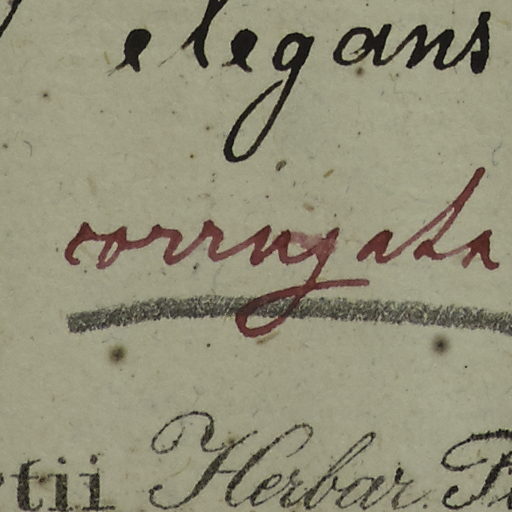 elegans
corrugata
Herbar.